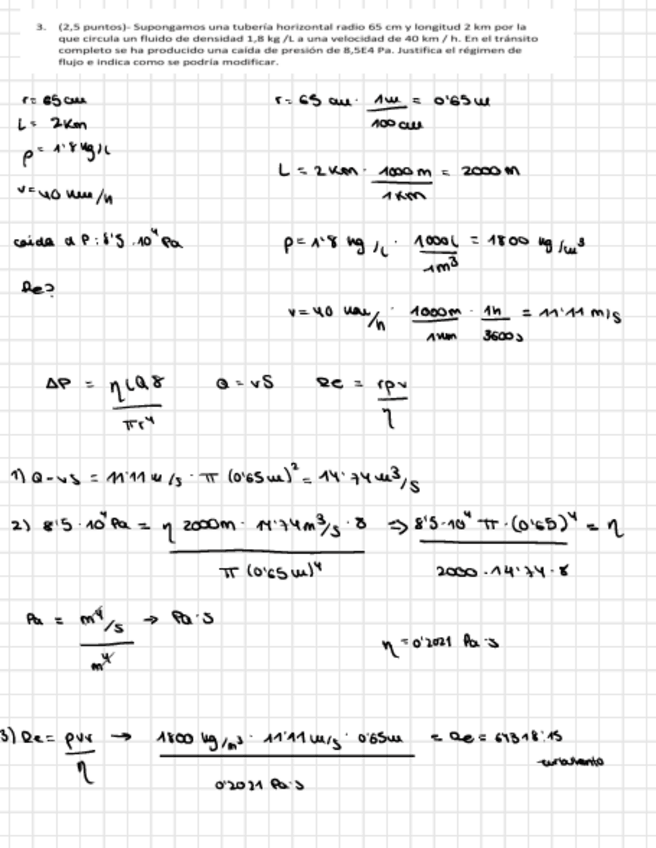 3. (2,5 puntos)- Supongamos una tubería horizontal radio 65 cm y longitud 2 km por la
que circula un fluido de densidad 1,8 kg /L a una velocidad de 40 km / h. En el tránsito
completo se ha producido una caída de presión de 8,5E4 Pa. Justifica el régimen de
flujo e indica como se podría modificar.
r= 65cm
L= 2Km
ρ= 1'8 kg/L
v=40 km/h
caída d P: 8'5 · 10⁴ Pa
Re?
r= 65 cm · 1m/100 cm = 0'65m
L = 2 Km · 1000 m/1 Km = 2000 m
ρ= 1'8 kg/L · 1000L/1m³ = 1800 kg/m³
v=40 km/h · 1000m/1km · 1h/3600s = 11'11 m/s
ΔP = ηLQ8/πr⁴ Q = vS Re = rρv/η
1) Q=vS = 11'11 m/s · π (0'65m)² = 14'74 m³/s
2) 8'5 · 10⁴ Pa = η 2000m · 14'74m³/s · 8/π (0'65m)⁴ ⇒ 8'5·10⁴ π · (0'65)⁴/2000 · 14'74 · 8 = η
Pa = m⁴/s/m⁴ → Pa·s
η = 0'2021 Pa·s
3) Re= ρvr/η → 1800 kg/m³ · 11'11 m/s · 0'65m/0'2021 Pa·s = Re = 64318'15
turbulento